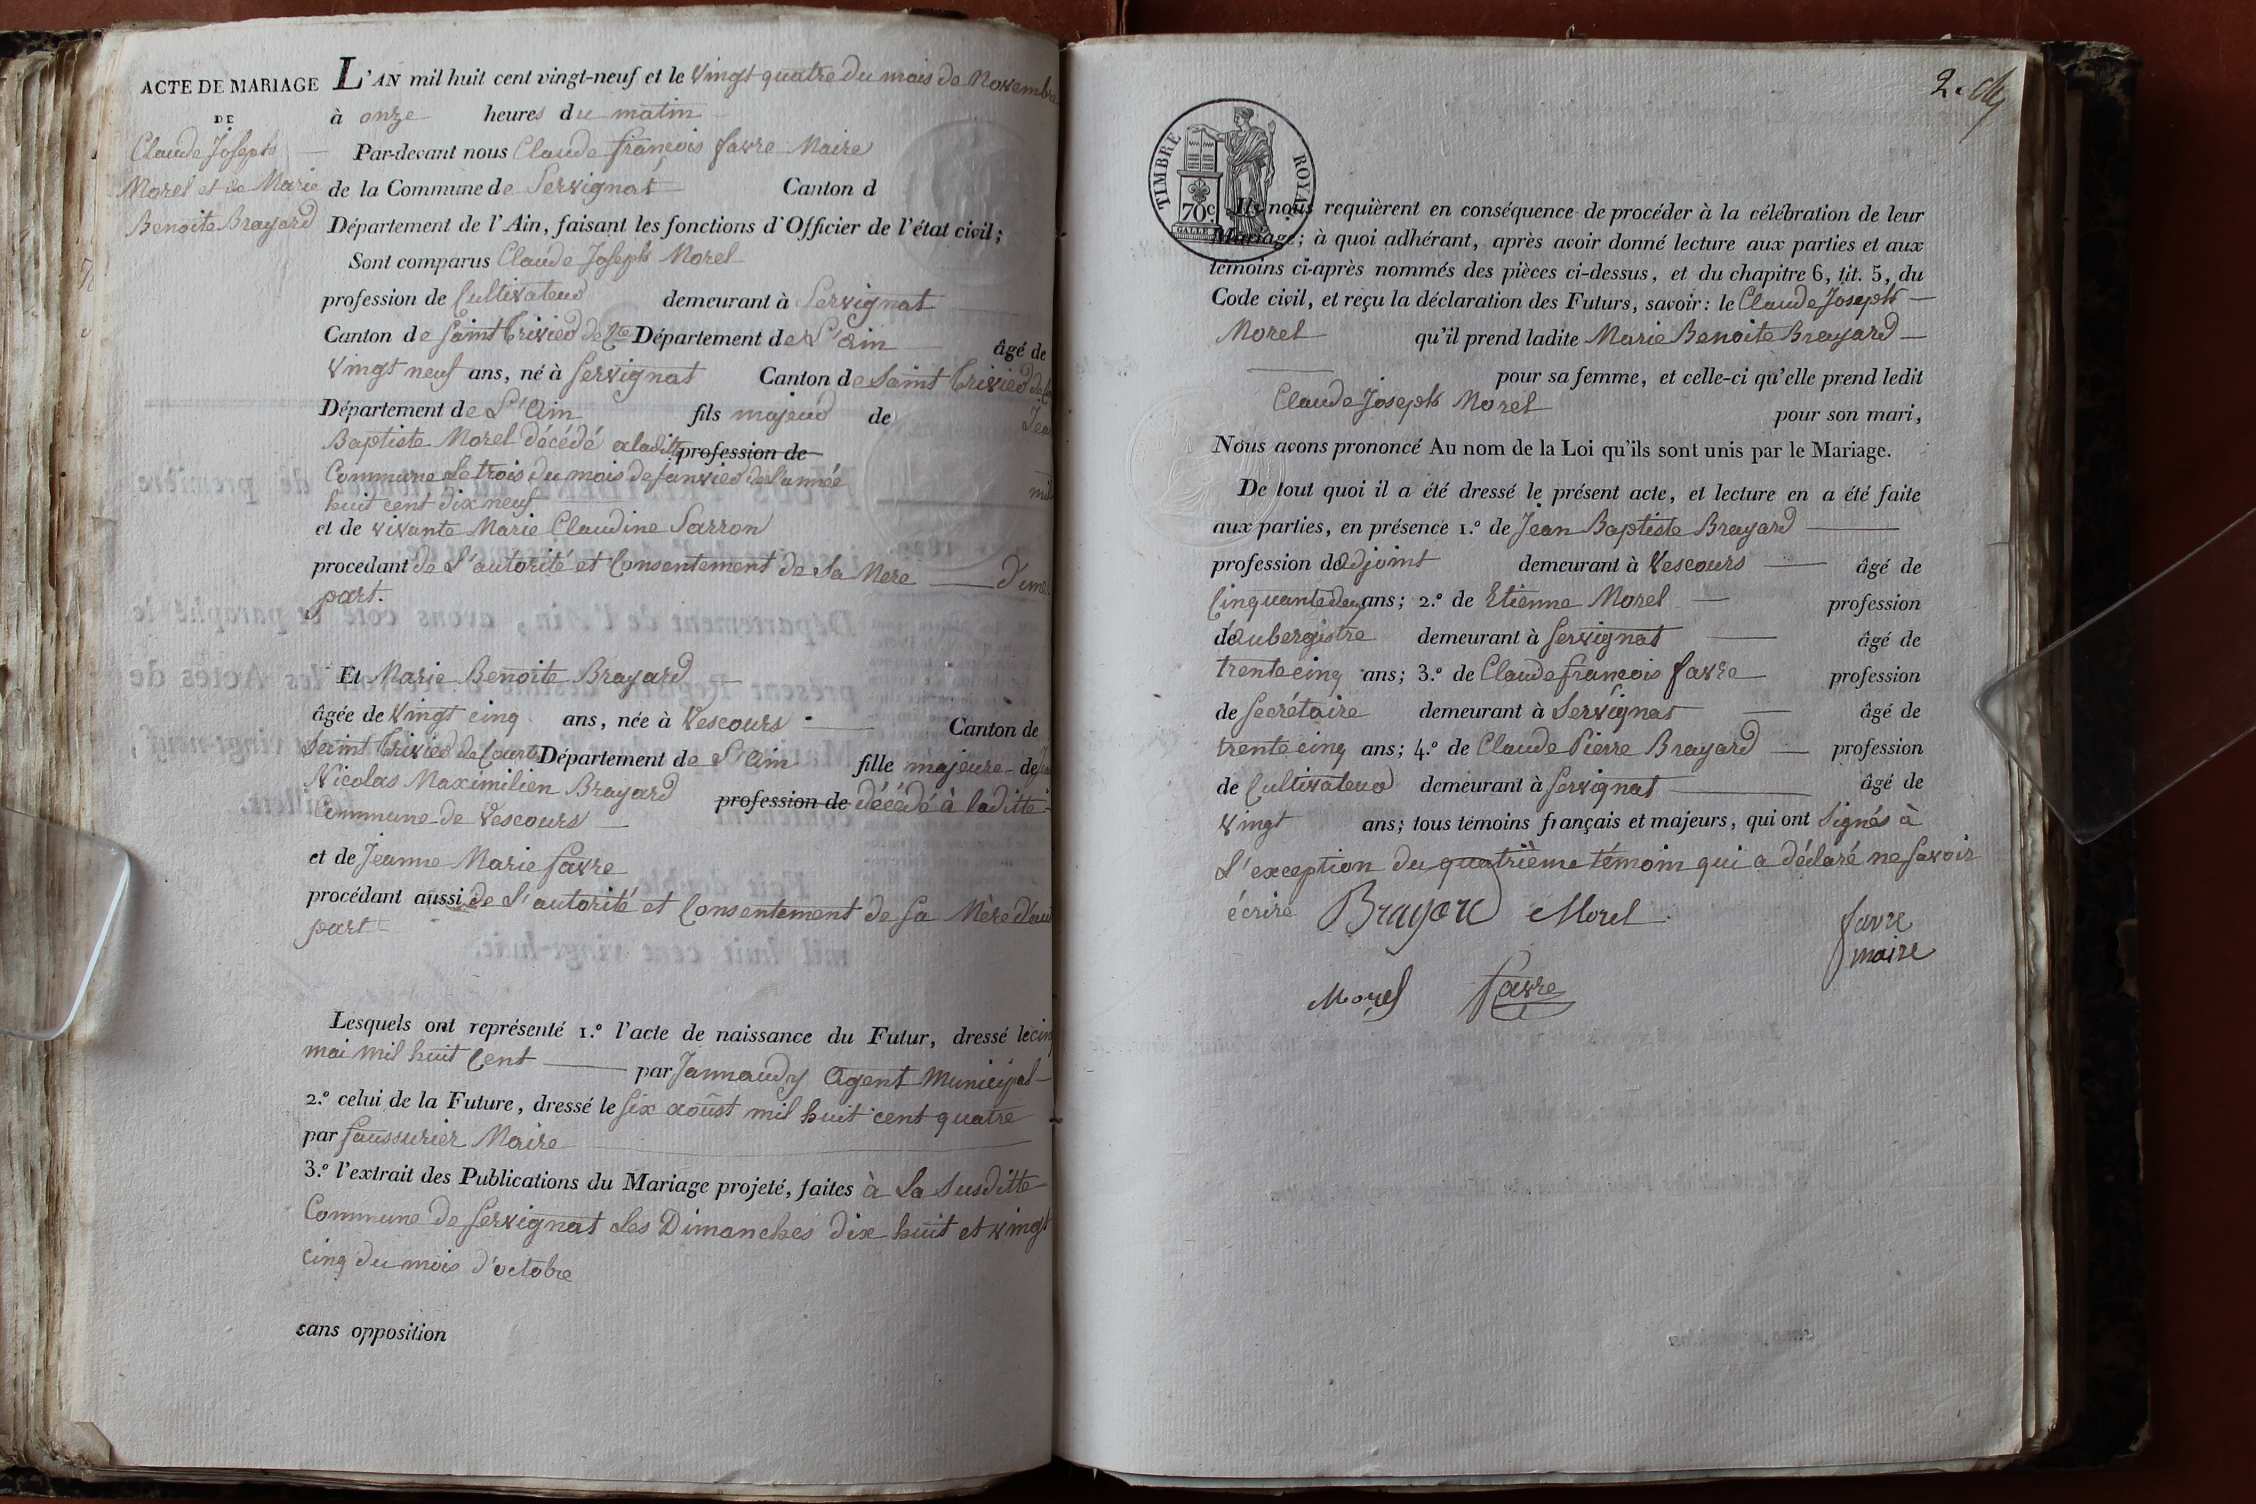 ACTE DE MARIAGE
DE
Claude Joseph
Morel et de Marie
Benoite Brayard
L'AN mil huit cent vingt-neuf et le vingt quatre du mois de Novembre
à onze heures du matin
Par-devant nous Claude françois favre Maire
de la Commune de Servignat Canton d
Département de l'Ain, faisant les fonctions d'Officier de l'état civil;
Sont comparus Claude Joseph Morel
profession de Cultivateur demeurant à Servignat
Canton de Saint Trivier de Cte Département de L'ain âgé de
vingt neuf ans, né à Servignat Canton de Saint Trivier de
Département de L'Ain fils majeur de Jean
Baptiste Morel décédé aladitte profession de
Commune Le trois du mois de janvier de L'année mil
huit cent dix neuf
et de vivante Marie Claudine Sarron
procedant de L'autorité et Consentement de Sa Mere d'une
part.
Et Marie Benoite Brayard
âgée de vingt cinq ans, née à Vescours Canton de
Saint Trivier de Courte Département de L'ain fille majeure de
Nicolas Maximilien Brayard profession de décédé à laditte
Commune de Vescours
et de Jeanne Marie favre
procédant aussi de L'autorité et Consentement de Sa Mère d'au
part
Lesquels ont représenté 1.º l'acte de naissance du Futur, dressé le cinq
mai mil huit Cent par Jannaudy Agent Municipal
2.º celui de la Future, dressé le six août mil huit cent quatre
par faussurier Maire
3.º l'extrait des Publications du Mariage projeté, faites à La Susditte
Commune de Servignat Les Dimanches dix huit et vingt
cinq du mois d'octobre
sans opposition
2.
TIMBRE ROYAL
70 c.
Ils nous requièrent en conséquence de procéder à la célébration de leur
Mariage; à quoi adhérant, après avoir donné lecture aux parties et aux
témoins ci-après nommés des pièces ci-dessus, et du chapitre 6, tit. 5, du
Code civil, et reçu la déclaration des Futurs, savoir: le Claude Joseph
Morel qu'il prend ladite Marie Benoite Brayard
pour sa femme, et celle-ci qu'elle prend ledit
Claude Joseph Morel pour son mari,
Nous avons prononcé Au nom de la Loi qu'ils sont unis par le Mariage.
De tout quoi il a été dressé le présent acte, et lecture en a été faite
aux parties, en présence 1.º de Jean Baptiste Brayard
profession d'adjoint demeurant à Vescours âgé de
Cinquante deux ans; 2.º de Etienne Morel profession
d'aubergistre demeurant à Servignat âgé de
trente cinq ans; 3.º de Claude françois favre profession
de Secrétaire demeurant à Servignat âgé de
trente cinq ans; 4.º de Claude Pierre Brayard profession
de Cultivateur demeurant à Servignat âgé de
vingt ans; tous témoins français et majeurs, qui ont Signés à
L'exception du quatrième témoin qui a déclaré ne Savoir
écrire Brayard Morel favre
maire
Morel favre